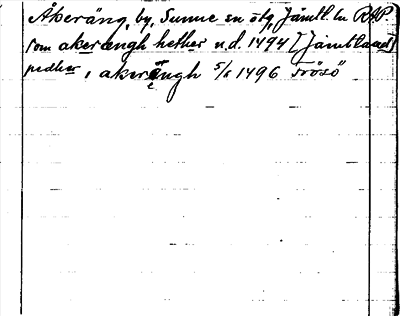 Åkeräng, by, Sunne sn o tg, Jämtl. ln RAP
som akerængh hether u.d. 1494 [Jämtland]
pedher, akerengh 5/8 1496 Frösö